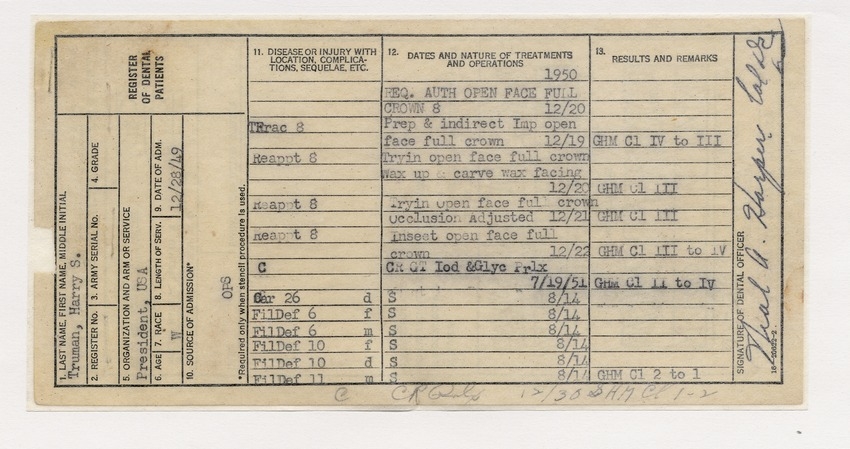 REGISTER
OF DENTAL
PATIENTS
1. LAST NAME, FIRST NAME, MIDDLE INITIAL
Truman, Harry S.
2. REGISTER No.
3. ARMY SERIAL No.
4. GRADE
5. ORGANIZATION AND ARM OR SERVICE
President, USA
6. AGE
7. RACE
8. LENGTH OF SERV.
9. DATE OF ADM.
W
12/28/49
10. SOURCE OF ADMISSION*
OPS
*Required only when stencil procedure is used.
11. DISEASE OR INJURY WITH
LOCATION, COMPLICA-
TIONS, SEQUELAE, ETC.
12. DATES AND NATURE OF TREATMENTS
AND OPERATIONS
13. RESULTS AND REMARKS
1950
REQ. AUTH OPEN FACE FULL
CROWN 8 12/20
Frac 8 Prep & indirect Imp open
face full crown 12/19 GHM Cl IV to III
Reappt 8 Tryin open face full crown
Wax up & carve wax facing
12/20 GHM Cl III
Reappt 8 Tryin open face full crown
Occlusion Adjusted 12/21 GHM Cl III
Reappt 8 Insert open face full
crown 12/22 GHM Cl III to IV
C CR GT Iod &Glyc Prlx
7/19/51 GHM Cl II to IV
Car 26 d S 8/14
FilDef 6 f S 8/14
FilDef 6 m S 8/14
FilDef 10 f S 8/14
FilDef 10 d S 8/14
FilDef 11 m S 8/14 GHM Cl 2 to 1
C CR 12/30 GHM Cl 1-2
SIGNATURE OF DENTAL OFFICER
Neal A. Harper Col DC